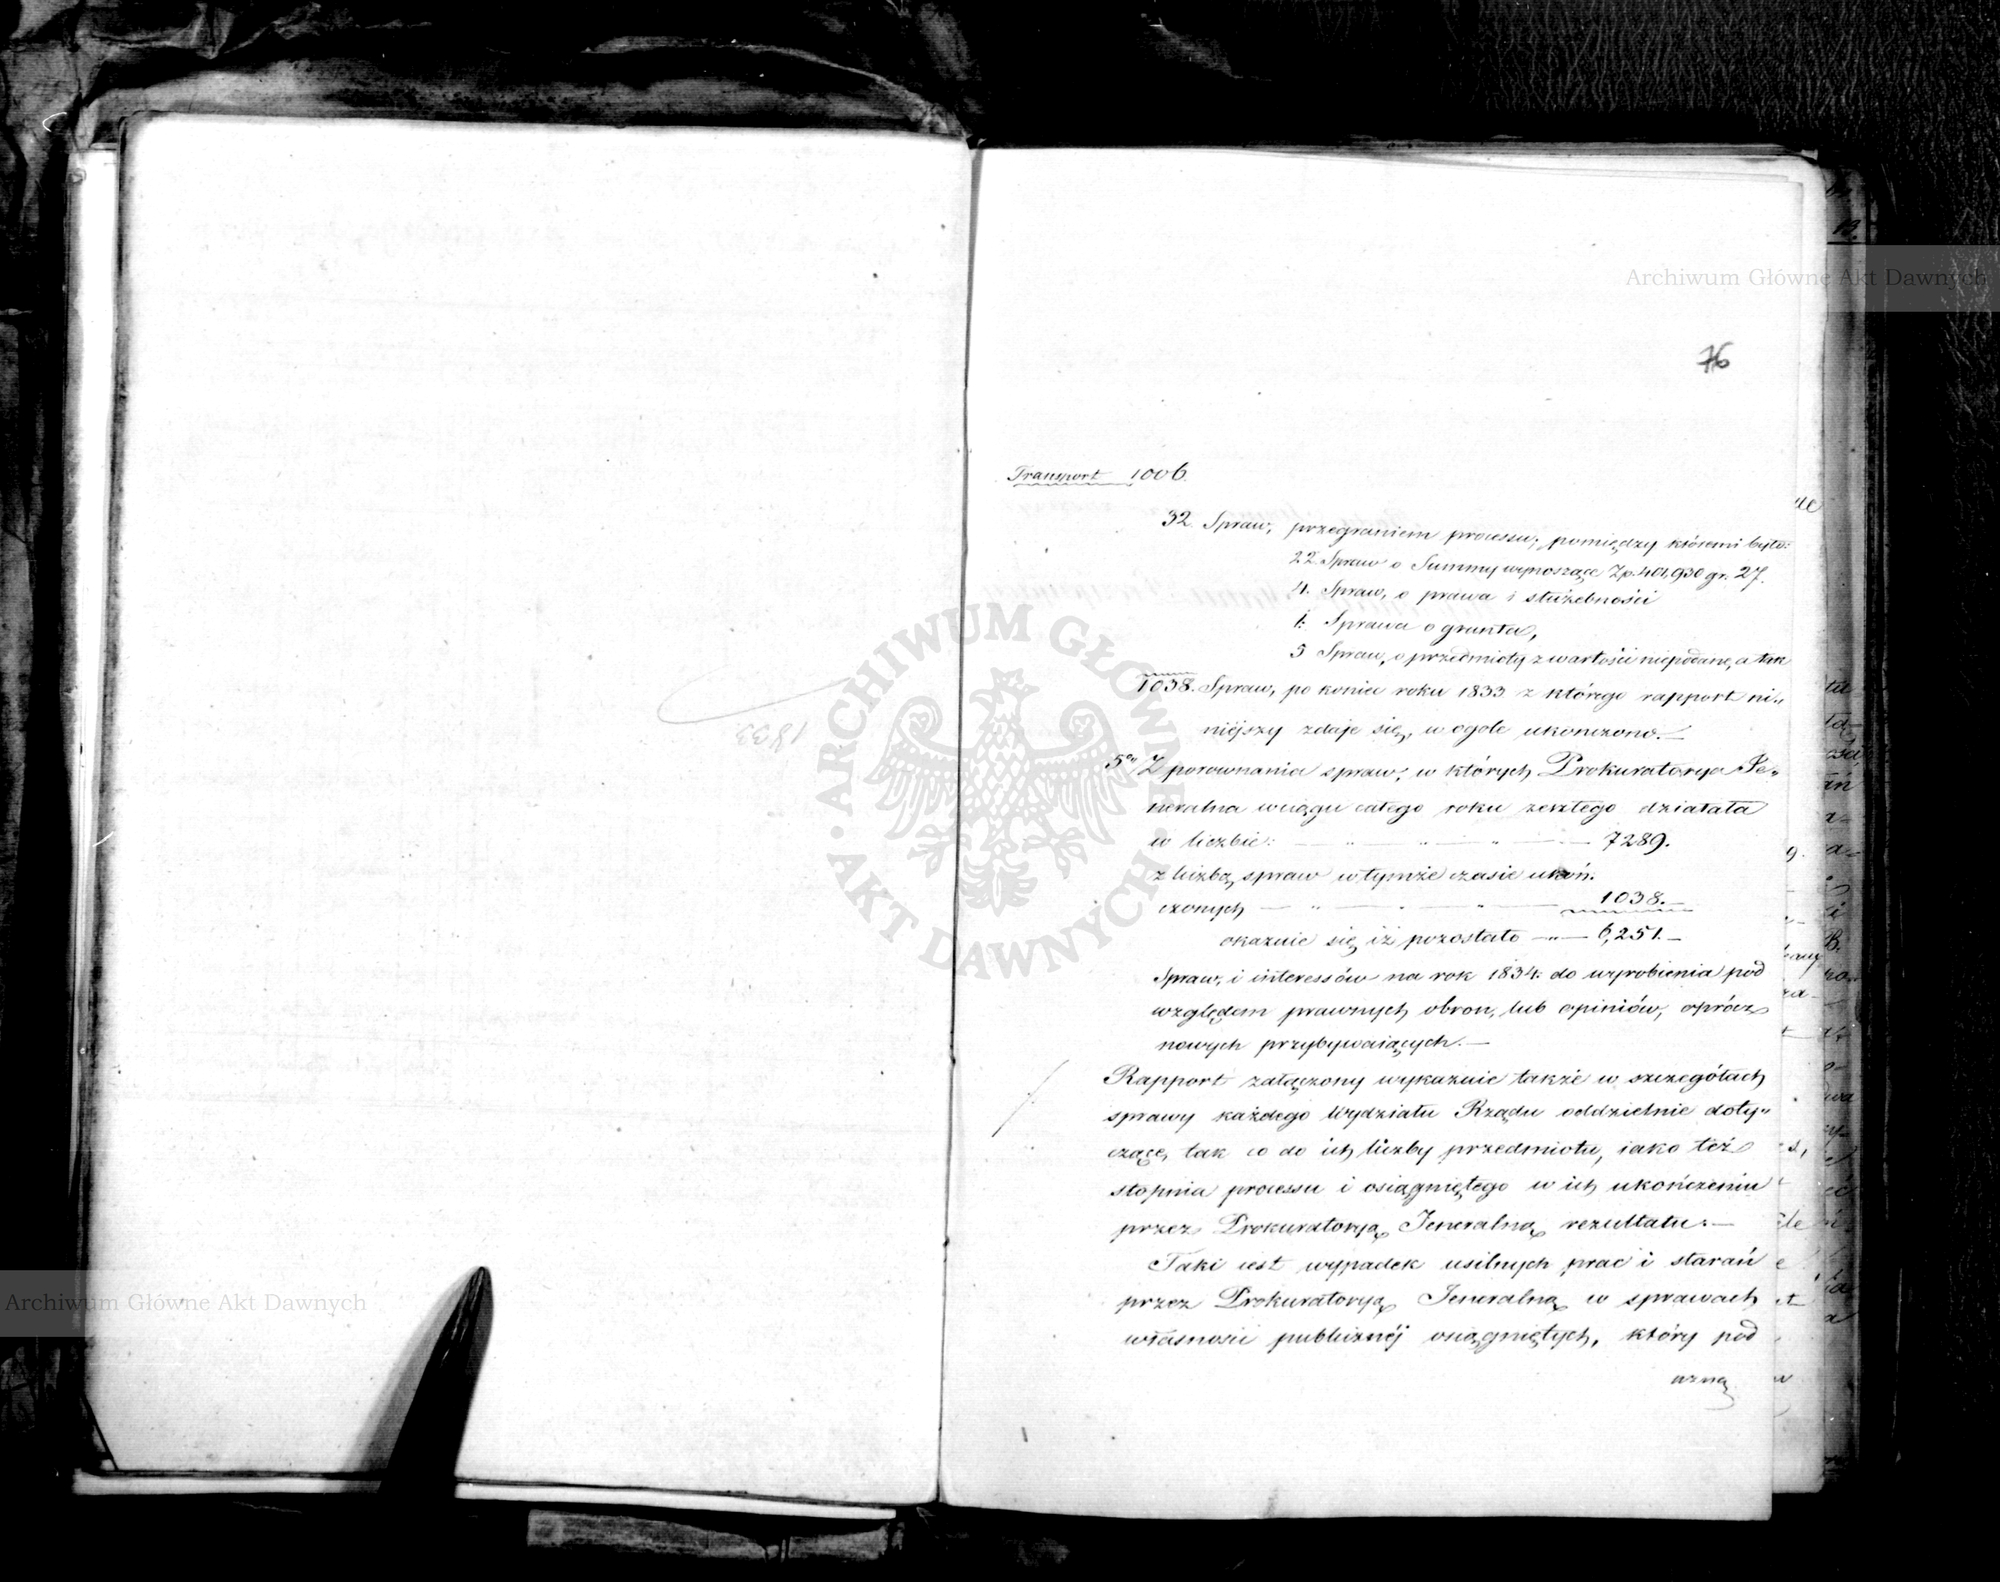 Archiwum Główne Akt Dawnych
76
Transport 1006.
32. Spraw, przegraniem processu, pomiędzy któremi było:
22 Spraw o Summy wynoszące Zp. 401,930 gr. 27.
4. Spraw, o prawa i służebności
1: Sprawa o grunta,
5 Spraw, o przedmioty z wartości niepodane, a tak
1038. Spraw, po koniec roku 1833 z którego rapport ni„
niejszy zdaje się, w ogole ukończono.—
5o/ Z porownania spraw, w których Prokuratorya Je„
neralna wciągu całego roku zeszłego działała
w liczbie: — „ — „ — „ — 7289.
z liczbą spraw w tymże czasie ukoń.
czonych — „ — „ — „ — 1038.—
okazuie się iż pozostało — „ — 6,251.—
Spraw, i interessów na rok 1834: do wyrobienia pod
względem prawnych obron, lub opiniów, oprócz
nowych przybywaiących.—
Rapport załączony wykazuie także w szczegółach
sprawy każdego Wydziału Rządu oddzielnie doty„
czące, tak co do ich liczby przedmiotu, iako też
stopnia processu i osiągniętego w ich ukończeniu
przez Prokuratoryą Jeneralną rezultatu.—
Taki iest wypadek usilnych prac i starań
przez Prokuratoryą Jeneralną w sprawach
własności publicznéj osiągniętych, który pod
1833.
ARCHIWUM GŁÓWNE
AKT DAWNYCH
Archiwum Główne Akt Dawnych